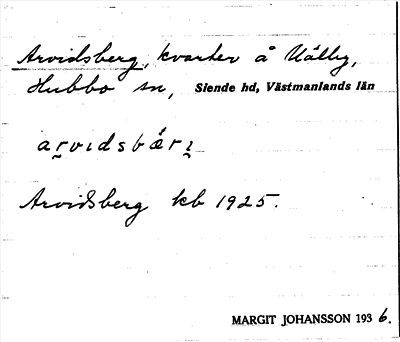 Arvidsberg, kvarter å Vålby,
Hubbo sn, Siende hd, Västmanlands län
arvidsbæri
Arvidsberg kb 1925.
MARGIT JOHANSSON 1936.